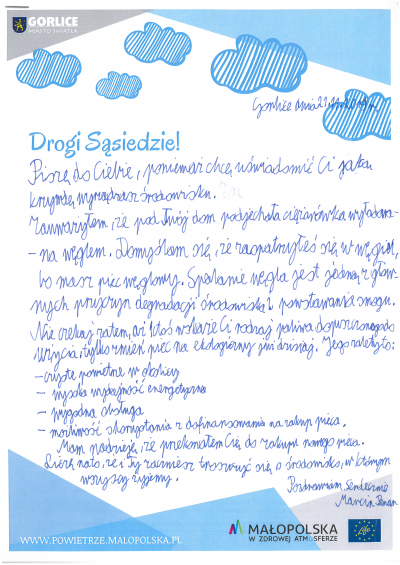 GORLICE
MIASTO ŚWIATŁA
Gorlice dnia 22
Drogi Sąsiedzie!
Piszę do Ciebie, ponieważ chcę uświadomić Ci jaką
krzywdę wyrządzasz środowisku.
Zauważyłem, że pod Twój dom podjechała ciężarówka wyładowa-
-na węglem. Domyślam się, że zaopatrzyłeś się w węgiel,
bo masz piec węglowy. Spalanie węgla jest jedną z głów-
nych przyczyn degradacji środowiska i powstawania smogu.
Nie czekaj zatem, aż ktoś wskaże Ci rodzaj paliwa dopuszczonego do
użycia, tylko zmień piec na ekologiczny już dzisiaj. Jego zalety to:
- czyste powietrze w okolicy
- wysoka wydajność energetyczna
- wygodna obsługa
- możliwość skorzystania z dofinansowania na zakup pieca.
Mam nadzieję, że przekonałem Cię do zakupu nowego pieca.
Liczę na to, że i Ty zaczniesz troszczyć się o środowisko, w którym
wszyscy żyjemy.
Pozdrawiam serdecznie
Marcin
WWW.POWIETRZE.MALOPOLSKA.PL
MAŁOPOLSKA
W ZDROWEJ ATMOSFERZE
Life